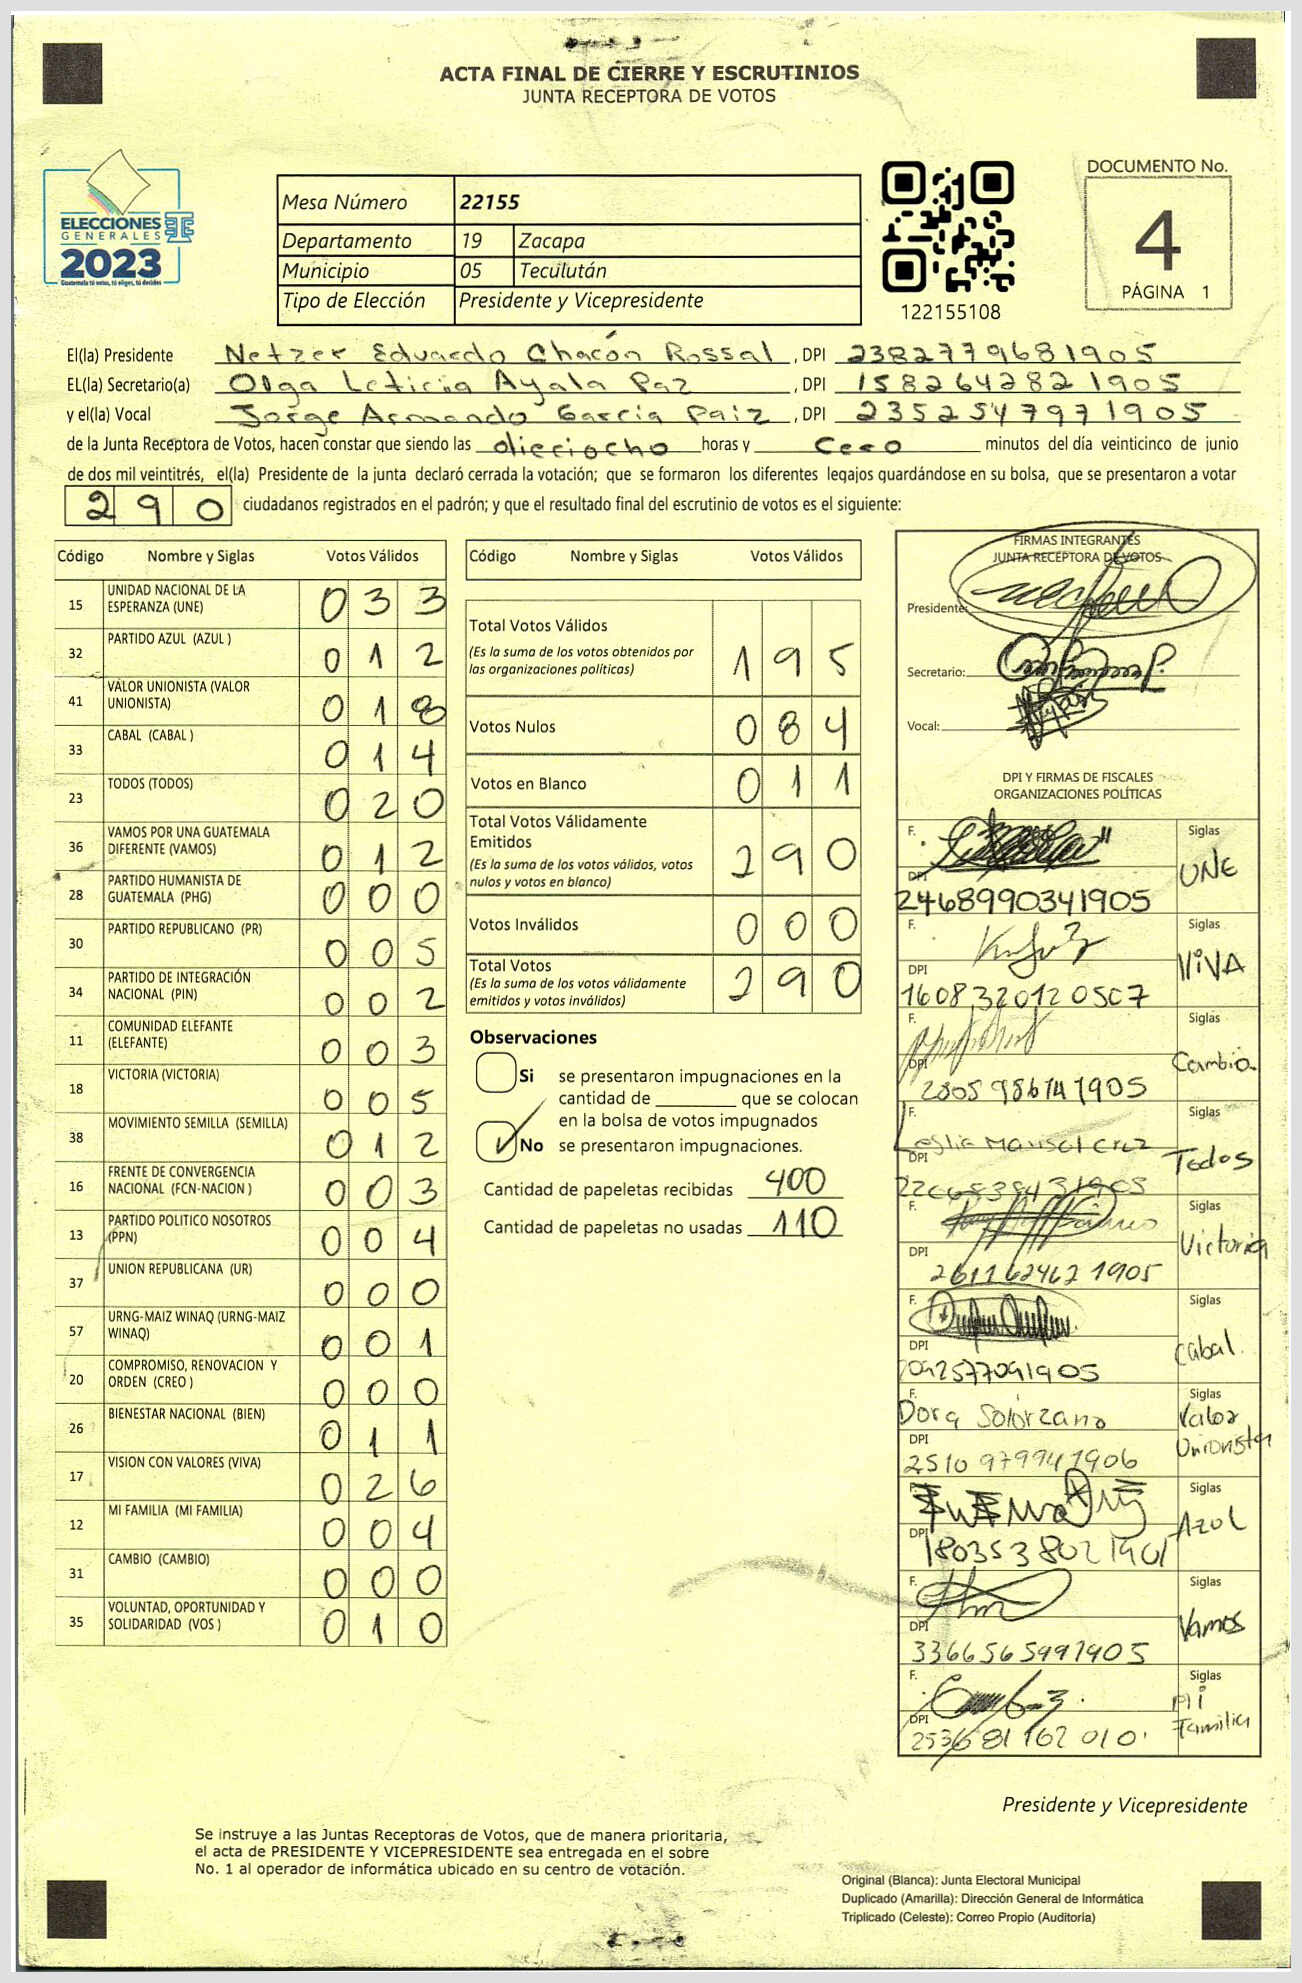 ACTA FINAL DE CIERRE Y ESCRUTINIOS
JUNTA RECEPTORA DE VOTOS
ELECCIONES
GENERALES
2023
Guatemala tú votas, tú eliges, tú decides
Mesa Número 22155
Departamento 19 Zacapa
Municipio 05 Teculután
Tipo de Elección Presidente y Vicepresidente
122155108
DOCUMENTO No.
4
PÁGINA 1
El(la) Presidente Netzer Eduardo Chacón Rossal , DPI 2382779681905
EL(la) Secretario(a) Olga Leticia Ayala Paz , DPI 1582642821905
y el(la) Vocal Jorge Armando García Paiz , DPI 2352547971905
de la Junta Receptora de Votos, hacen constar que siendo las dieciocho horas y Cero minutos del día veinticinco de junio
de dos mil veintitrés, el(la) Presidente de la junta declaró cerrada la votación; que se formaron los diferentes legajos guardándose en su bolsa, que se presentaron a votar
290 ciudadanos registrados en el padrón; y que el resultado final del escrutinio de votos es el siguiente:
Código Nombre y Siglas Votos Válidos
15 UNIDAD NACIONAL DE LA ESPERANZA (UNE) 033
32 PARTIDO AZUL (AZUL ) 012
41 VALOR UNIONISTA (VALOR UNIONISTA) 018
33 CABAL (CABAL ) 014
23 TODOS (TODOS) 020
36 VAMOS POR UNA GUATEMALA DIFERENTE (VAMOS) 012
28 PARTIDO HUMANISTA DE GUATEMALA (PHG) 000
30 PARTIDO REPUBLICANO (PR) 005
34 PARTIDO DE INTEGRACIÓN NACIONAL (PIN) 002
11 COMUNIDAD ELEFANTE (ELEFANTE) 003
18 VICTORIA (VICTORIA) 005
38 MOVIMIENTO SEMILLA (SEMILLA) 012
16 FRENTE DE CONVERGENCIA NACIONAL (FCN-NACION ) 003
13 PARTIDO POLITICO NOSOTROS (PPN) 004
37 UNION REPUBLICANA (UR) 000
57 URNG-MAIZ WINAQ (URNG-MAIZ WINAQ) 001
20 COMPROMISO, RENOVACION Y ORDEN (CREO ) 000
26 BIENESTAR NACIONAL (BIEN) 011
17 VISION CON VALORES (VIVA) 026
12 MI FAMILIA (MI FAMILIA) 004
31 CAMBIO (CAMBIO) 000
35 VOLUNTAD, OPORTUNIDAD Y SOLIDARIDAD (VOS ) 010
Código Nombre y Siglas Votos Válidos
Total Votos Válidos 195
(Es la suma de los votos obtenidos por
las organizaciones políticas)
Votos Nulos 084
Votos en Blanco 011
Total Votos Válidamente
Emitidos 290
(Es la suma de los votos válidos, votos
nulos y votos en blanco)
Votos Inválidos 000
Total Votos 290
(Es la suma de los votos válidamente
emitidos y votos inválidos)
Observaciones
Si se presentaron impugnaciones en la
cantidad de ________ que se colocan
en la bolsa de votos impugnados
No se presentaron impugnaciones.
Cantidad de papeletas recibidas 400
Cantidad de papeletas no usadas 110
FIRMAS INTEGRANTES
JUNTA RECEPTORA DE VOTOS
Presidente:
Secretario:
Vocal:
DPI Y FIRMAS DE FISCALES
ORGANIZACIONES POLÍTICAS
F. Siglas
UNE
DPI
2468990341905
F. Siglas
VIVA
DPI
1608320120507
F. Siglas
Cambio
DPI
F. Siglas
Leslie Marisol Cruz
Todos
DPI
F. Siglas
Victoria
DPI
2611624621905
F. Siglas
Cabal.
DPI
F. Siglas
Dora Solorzano
Valor
Unionista
DPI
2510979941906
F. Siglas
Azul
DPI
1803538021901
F. Siglas
Vamos
DPI
3366565991905
F. Siglas
Mi
Familia
DPI
Presidente y Vicepresidente
Se instruye a las Juntas Receptoras de Votos, que de manera prioritaria,
el acta de PRESIDENTE Y VICEPRESIDENTE sea entregada en el sobre
No. 1 al operador de informática ubicado en su centro de votación.
Original (Blanca): Junta Electoral Municipal
Duplicado (Amarilla): Dirección General de Informática
Triplicado (Celeste): Correo Propio (Auditoria)